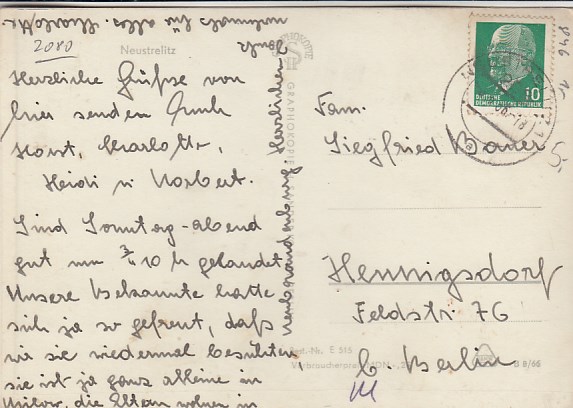 nochmals für alles.
2080
Neustrelitz
Herzliche Grüße von
hier senden Euch
Horst, Charlotte,
Heidi u Norbert.
Sind Sonntag-abend
gut um 3/4 10 h gelandet
Unsere Bekannte hatte
sich ja so gefreut, daß
wir sie wiedermal besuchten
sie ist ja ganz alleine in
Milow, die Eltern wohnen in
Neubrandenburg Herzlichen Dank
GRAPHOKOPIE
10
DEUTSCHE
DEMOKRATISCHE REPUBLIK
Fam.
Siegfried Bauer
5,-
Hennigsdorf
Feldstr 7G
b. Berlin
Best.-Nr. E 515
Verbraucherpreis MDN
B 8/66